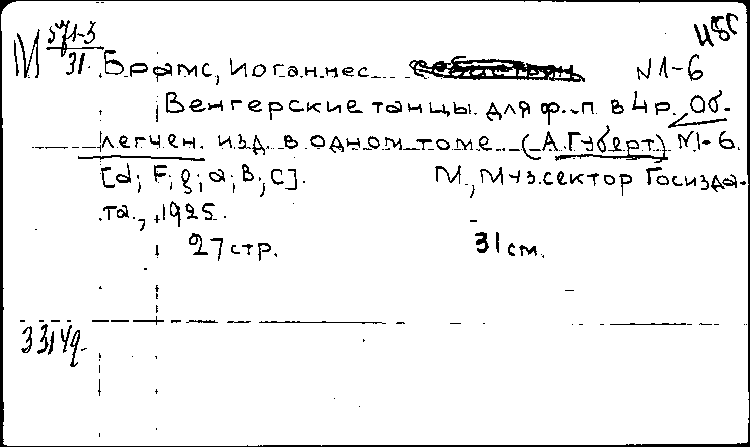 М 571-3
31
Брамс, Иоганнес N1-6
Венгерские танцы для ф.-п. в 4 р. Об-
легчен. изд. в одном томе (А. Губерт) N1-6.
[d; F; g; a; B; C]. М., Муз.сектор Госизда-
та, 1925.
27 стр. 31 см.